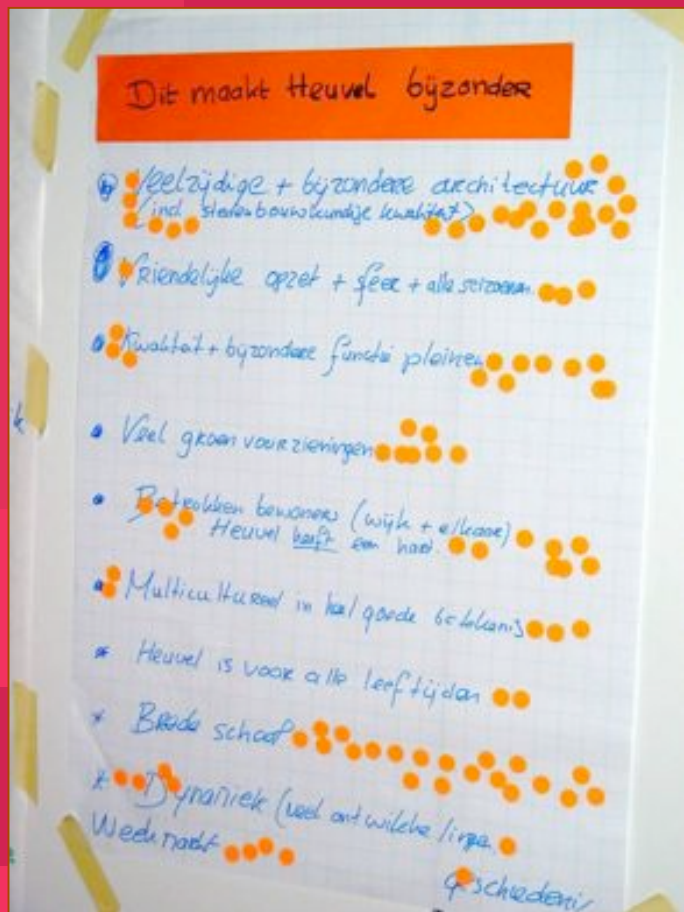 Dit maakt Heuvel bijzonder
Veelzijdige + bijzondere architectuur
(incl. stedenbouwkundige kwaliteit)
Vriendelijke opzet + sfeer + alle seizoenen
Kwaliteit + bijzondere functie pleinen
Veel groenvoorzieningen
Betrokken bewoners (wijk + elkaar)
Heuvel heeft een hart
Multicultureel in heel goede betekenis
Heuvel is voor alle leeftijden
Brede school
Dynamiek (veel ontwikkelingen
Weekmarkt
geschiedenis